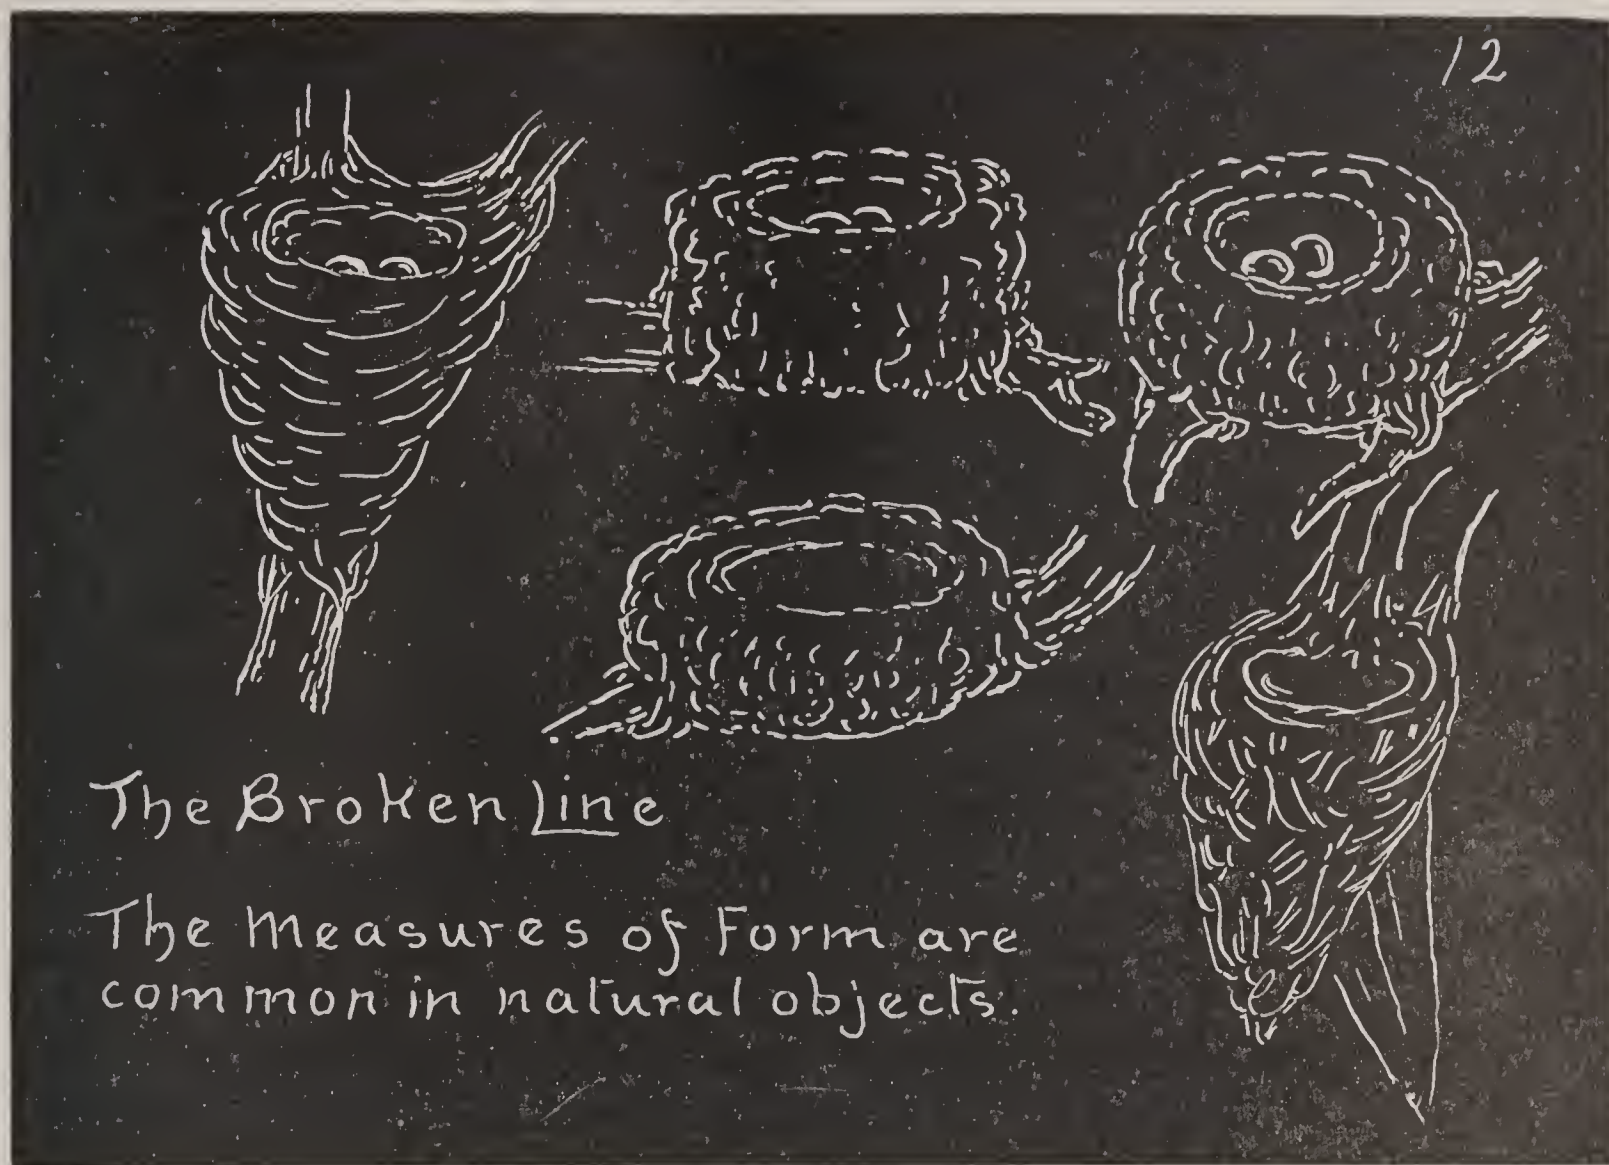 12
The Broken Line
The measures of Form are
common in natural objects.